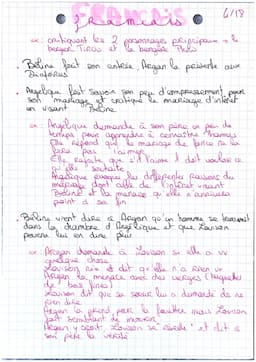 Français
6/18
ex: critiquent les 2 personnages principaux → le
berger Tircis et la bergère Philis
• Béline fait son entrée Argan la présente aux
Diafoirus
• Angélique fait savoir son peu d'empressement pour
son mariage et critique le mariage d'intérêt
en visant Béline
ex: Angélique demande à son père un peu de
temps pour apprendre à connaître Thomas
Elle répond que le mariage de force ne la
fera pas l'aimer
Elle refaite que s'il l'aime il doit vouloir ce
qu'elle souhaite
Angélique évoque les différentes raisons du
mariage dont celle de l'intérêt visant
Béline et la menace qu'elle n'arrivera
point à sa fin
• Béline vient dire à Argan qu'un homme se trouvait
dans la chambre d'Angélique et que Louison
pourra lui en dire plus
ex: Argan demande à Louison si elle a vu
quelque chose
Louison nie et dit qu'elle n'a rien vu
Argan la menace avec des verges
Louison dit que sa sœur lui a demandé de ne
rien dire
Argan la prend pour la fouetter mais Louison
fait semblant de mourir
Argan y croit, Louison se et dit à
son père la vérité